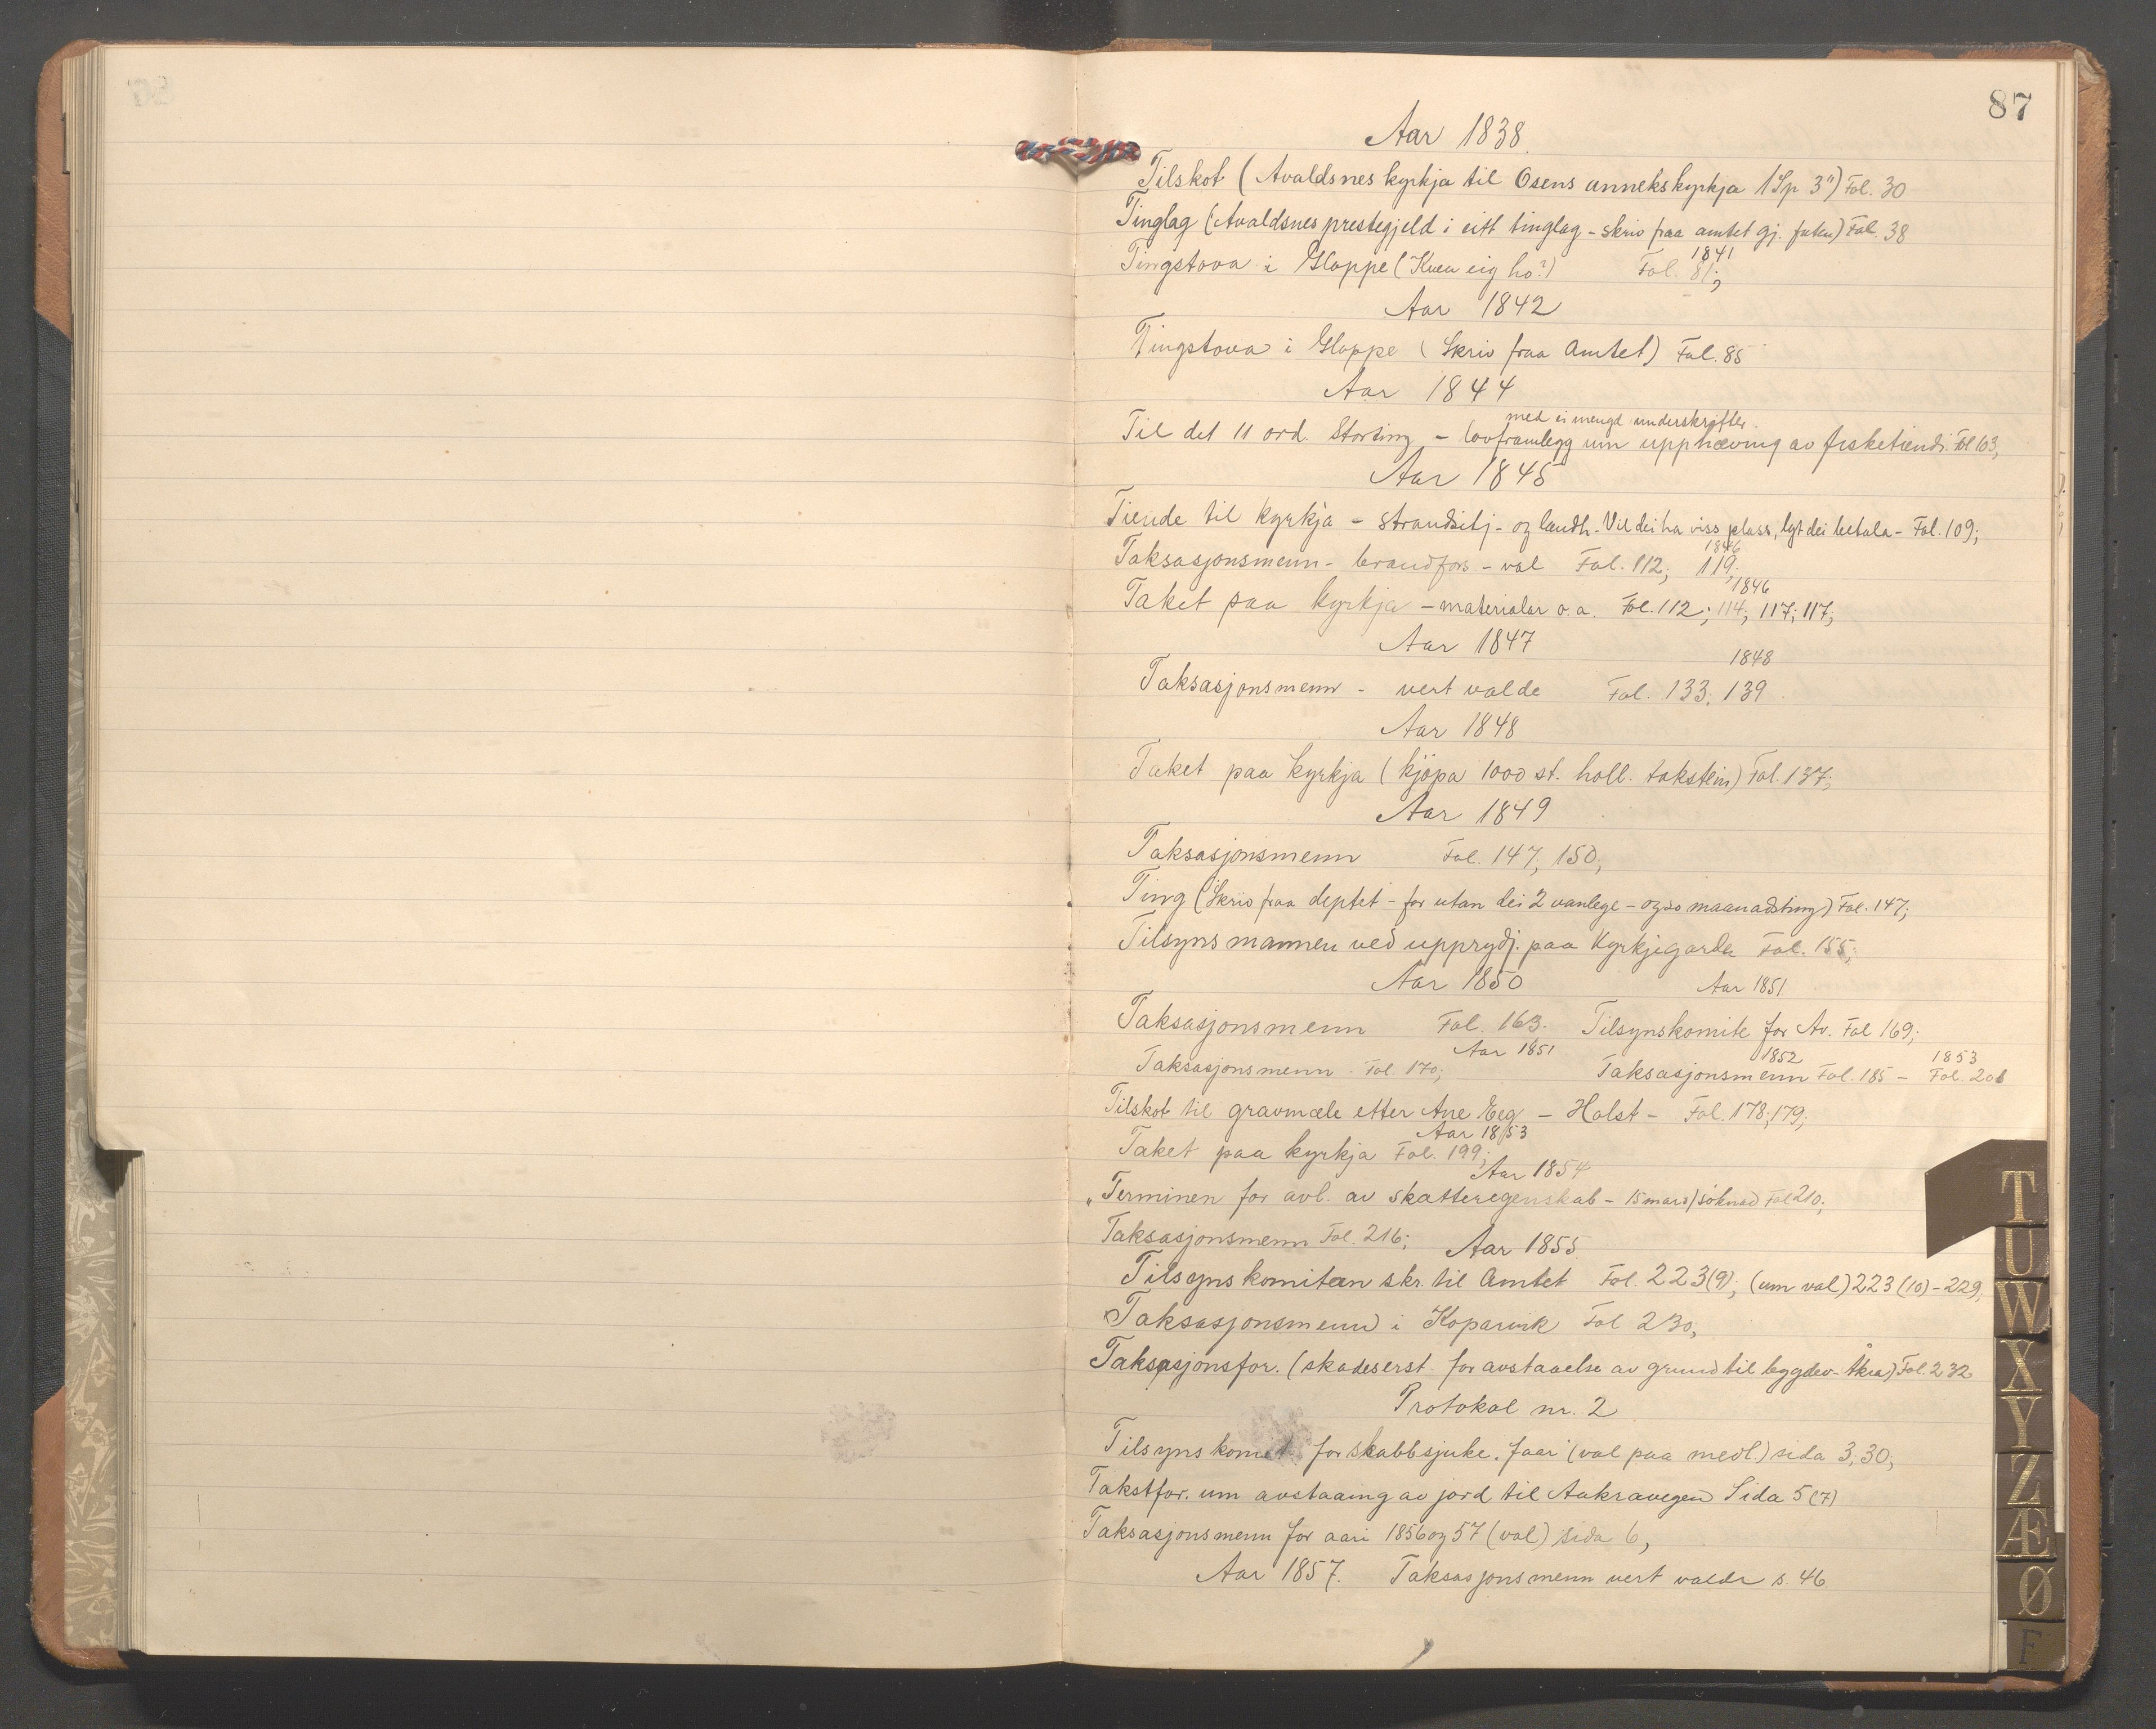 87
Aar 1838.
Tilskot (Avaldsnes kyrkja til Osens annekskyrkja 1 Sp 3") Fol. 30
Tinglag (Avaldsnes prestegjeld i eitt tinglag - skriv fraa amtet gj. futen) Fol. 38
1841
Tingstova i Gloppe (Kven eig ho?) Fol. 81;
Aar 1842
Tingstova i Gloppe (Skriv fraa Amtet) Fol. 85
Aar 1844
med ei mengd underskrifter.
Til det 11 ord. Storting - lovframlegg um upphæving av fisketiendi. Fol 103;
Aar 1845
Tiende til kyrkja - strandsitj- og landh. - Vil dei ha viss plass, lyt dei betala - Fol. 109;
1846
Taksasjonsmenn - brandfors - val Fol. 112; 119;
1846
Taket paa kyrkja - materialar o.a. Fol. 112; 114; 117; 117;
Aar 1847
1848
Taksasjonsmenn - vert valde Fol. 133; 139.
Aar 1848
Taket paa kyrkja (kjöpa 1000 st. holl. takstein) Fol. 137;
Aar 1849
Taksasjonsmenn Fol. 147; 150;
Ting (Skriv fraa deptet - for utan dei 2 vanlege - ogso maanadsting) Fol. 147;
Tilsynsmannen ved upprydj. paa Kyrkjegarden Fol. 155;
Aar 1850 Aar 1851
Taksasjonsmenn Fol. 163. Tilsynskomite for Av. Fol 169;
Aar 1851 1852 1853
Taksasjonsmenn. Fol. 170; Taksasjonsmenn Fol. 185 - Fol. 201
Tilskot til gravmæle etter Ane Eeg - Holst - Fol. 178; 179;
Aar 1853
Taket paa kyrkja Fol. 199;
Aar 1854
"Terminen for avl. av skatteregenskab - 15 mars/söknad Fol 210;
Taksasjonsmenn Fol. 216; Aar 1855.
Tilsynskomiteen skr. til Amtet Fol. 223(9); (um val) 223(10) - 229,
Taksasjonsmenn i Koparvik Fol 230,
Taksasjonsfor. (skadeserst. for avstaaelse av grund til bygdev. Åkra) Fol. 232
Protokol nr. 2
Tilsynskomit. for skabbsjuke faar (val paa medl.) sida 3, 30;
Takstfor. um avstaaing av jord til Aakravegen Sida 5(7)
Taksasjonsmenn for aari 1856 og 57 (val) sida 6,
Aar 1857. Taksasjonsmenn vert valde s. 46
T
U
W
X
Y
Z
Æ
Ø
F